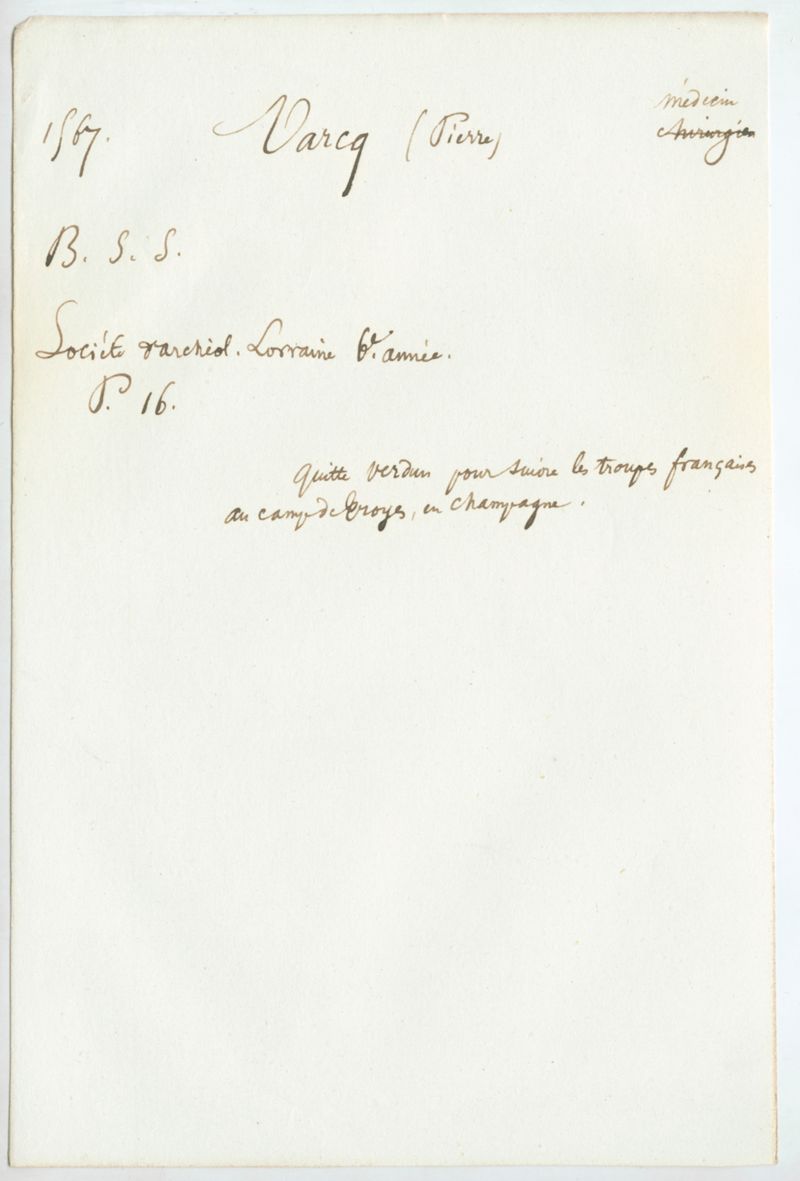 médecin
1567. Varcq (Pierre) chirurgien
B. S. S.
Société d'archéol. Lorraine 6e. année.
P. 16.
quitte verdun pour suivre les troupes françaises
au camp de Troyes, en champagne.